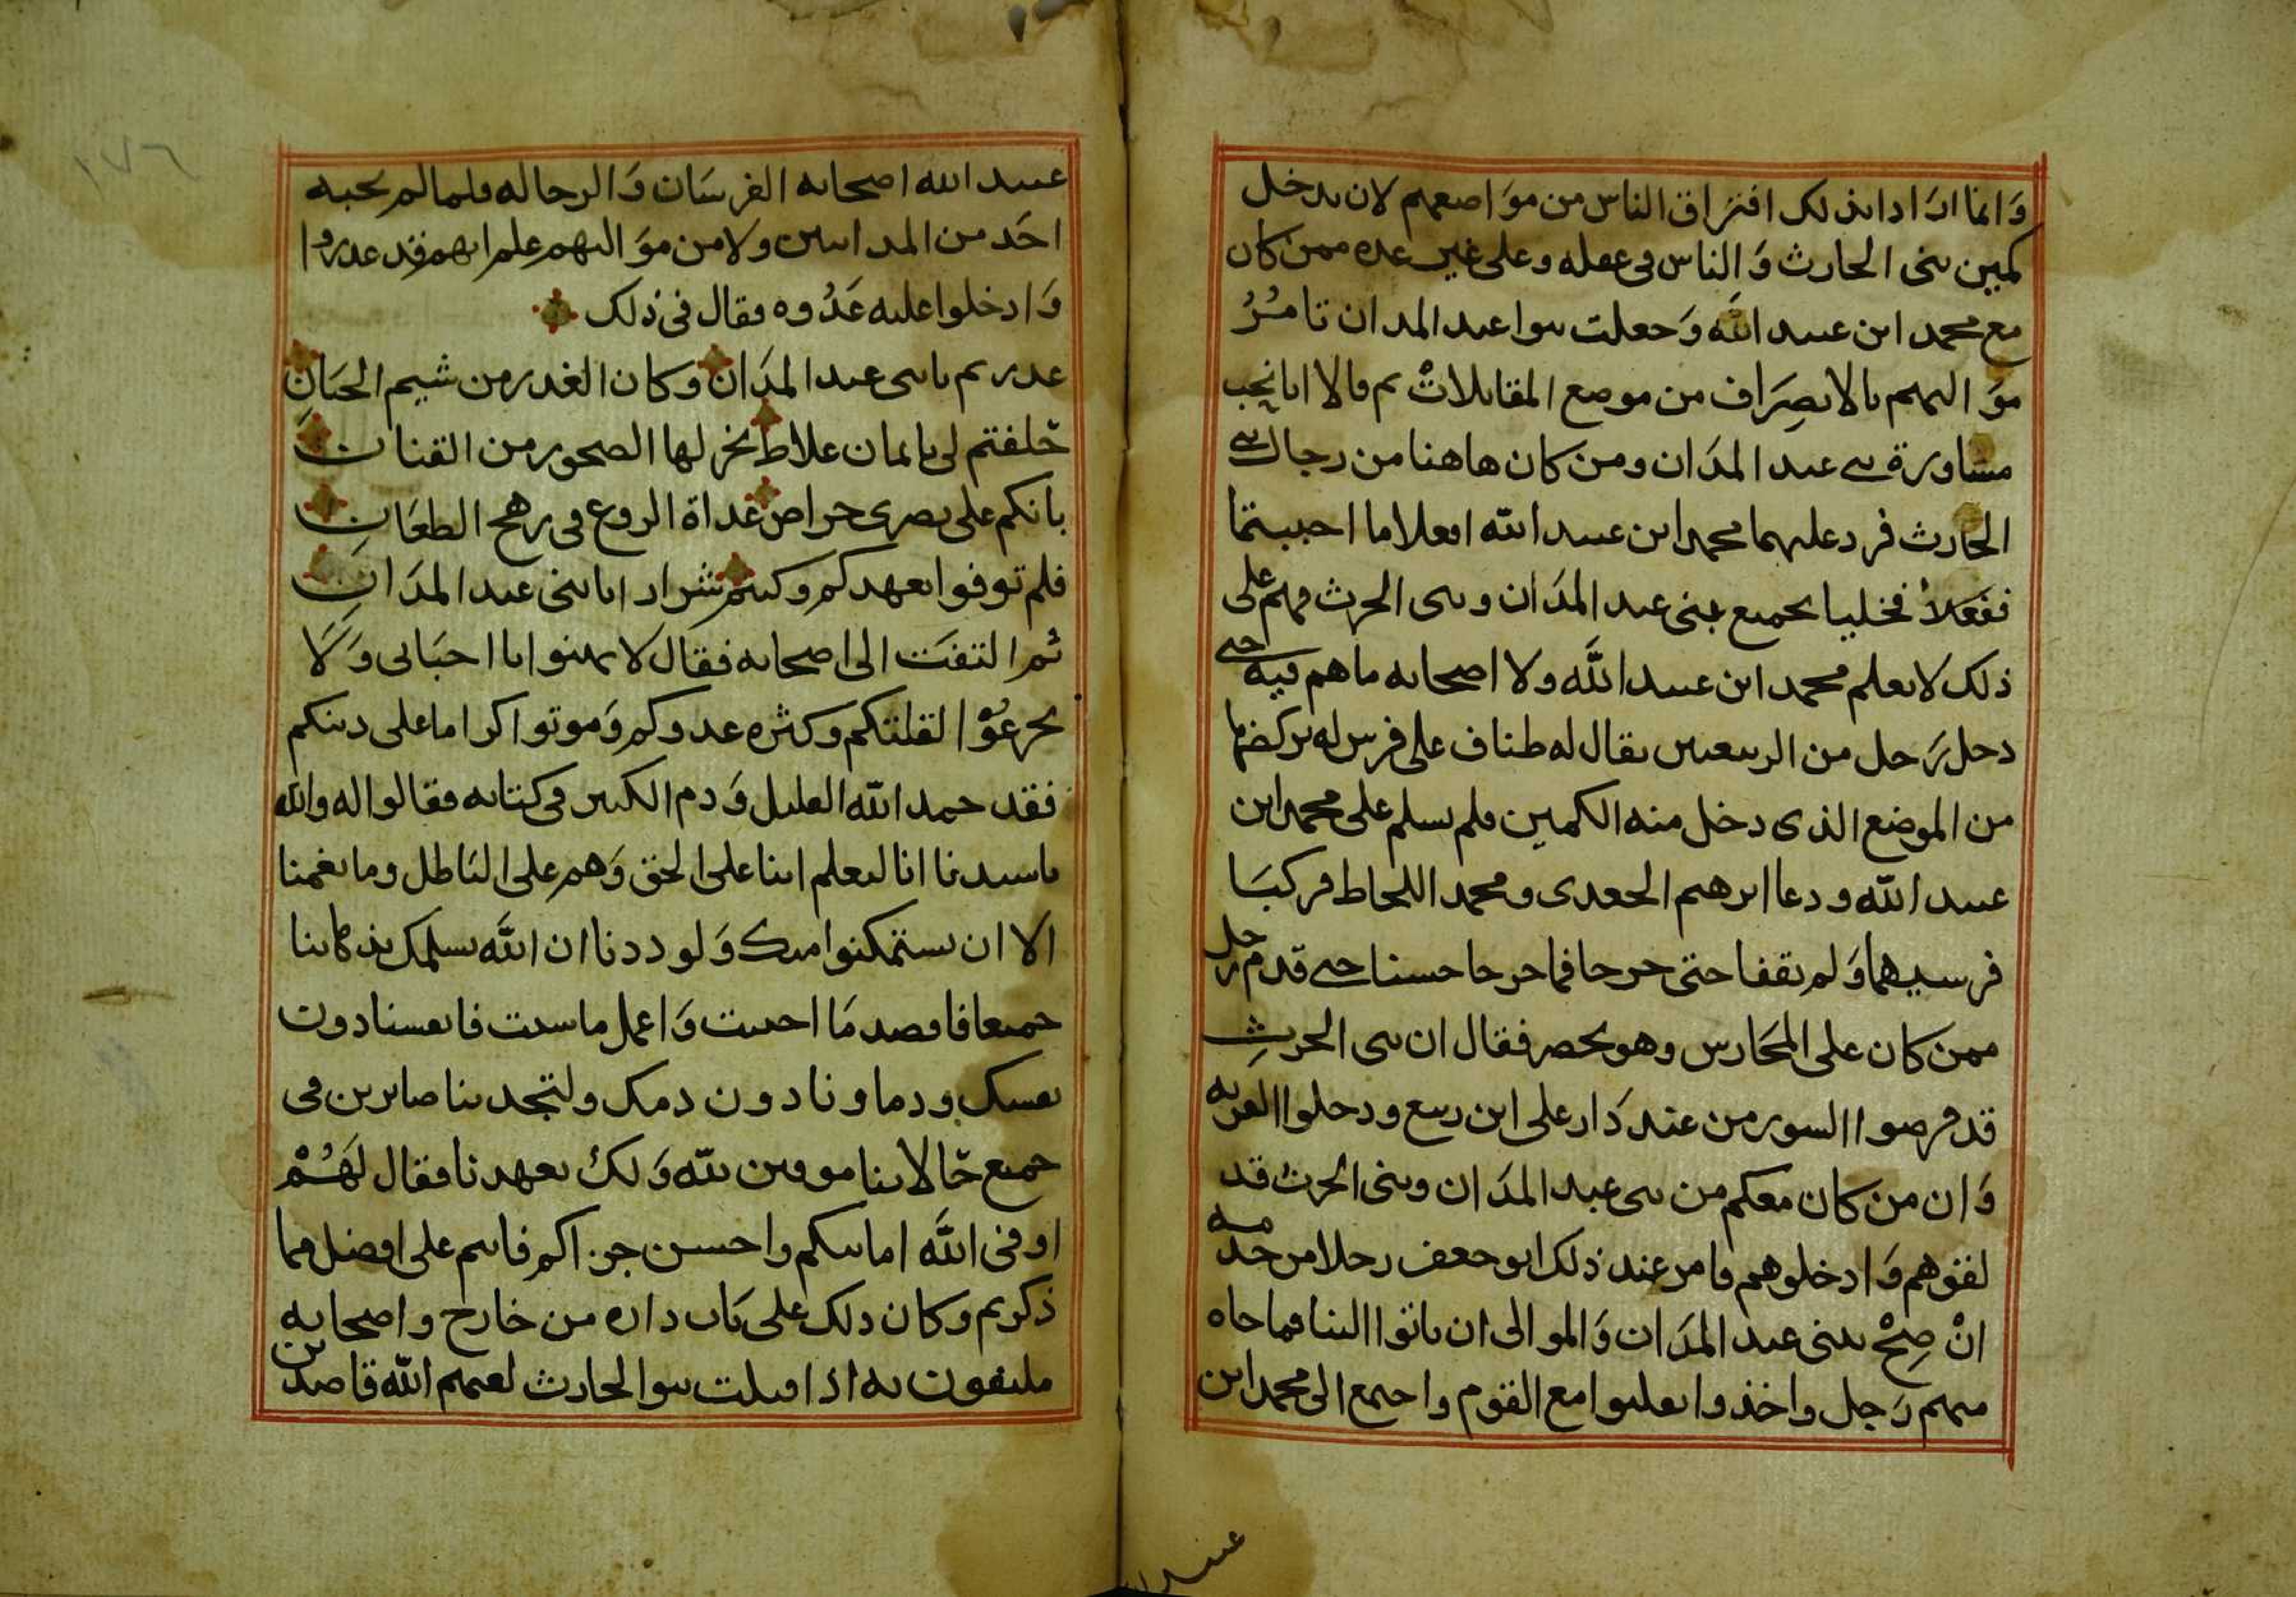 وَانما ارَادا بذلك افترَاق الناس من موَاضعهم لان يدخل
كمين بنى الحارث وَالناس في غفله وعلى غير عده ممن كان
مع محمد ابن عبيد اللَّه وَجعلت بنوا عبد المدان تامُرُ
موَاليهم بالانصِرَاف من موضع المقابلاتْ ثم قالا انا نحب
مشاورة بني عبد المدَان ومن كان هاهنا من رجال بني
الحارث فرد عليهما محمد ابن عبيد اللّه افعلا ما احببتما
ففعَلاْ فخليا بجميع بنى عبد المدَان وبنى الحرث فهم على
ذلك لا يعلم محمد ابن عبيد اللَّه ولا اصحابه ما هم فيه حتى
دخل رَجل من الربيعيين يقال له طناف على فرس له يركضها
من الموضع الذى دخل منه الكمين فلم يسلم على محمد ابن
عبيد اللّه ودعا ابرهيم الجعدى ومحمد اللحاط فركبَا
فرسيهما وَلم يقفا حتى خرجا فما خرجا حسنا حتى قدم رجل
ممن كان على المحَارس وهو يحصر فقال ان بنى الحرثِ
قد فرضوا السور من عند دَار على ابن ربيع ودخلوا القريه
وَان من كان معكم من بنى عبد المدَان وبنى الحرث قد
لقوهم وَادخلوهم فامر عند ذلك ابو جعفر رجلا من خدمه
انْ صِحْ ببنى عبد المدَان وَالموالى ان ياتوا الينا فما جاه
منهم رَجل واخذوا يغلبوا مع القوم واجتمع الى محمد ابن
عبيد ا
١٧٦
عبيد الله اصحابه الفرسَان وَالرجاله فلما لم يجبه
احَد من المدانيين ولا من موَاليهم علم انهم قد غدروا
وَادخلوا عليه عَدُوه فقال فى ذلك
غدرتم يا بنى عبد المدَان وكان الغدر من شيم الجبَانِ
حَلفتم لى بايمان غلاظ تخر لها الصخور من القنانِ
بانكم على نصرى حراص غداة الروع في رهج الطعَانِ
فلم توفوا بعهدكم وكنتم شرارا يا بنى عبد المدَانِ
ثم التفتَ الى اصحابه فقال لا تهنوا يا احبَابى وَلَا
تجزعُوْا لقلتكم وكثره عدوكم وَموتوا كراما على دينكم
فقد حمد اللّه القليل وَذم الكثير في كتابه فقالوا له واللّه
يا سيدنا انا لنعلم اننا على الحق وَهم على البَاطل وما يغمنا
الا ان يستمكنوا منك وَلوددنا ان اللَّه يسلمك بذهابنا
جميعا فاقصد مَا احببت وَاعمل ما شئت فانفسنا دون
نفسك ودماونا دون دمك ولتجدننا صابرين في
جميع حَالاتنا موفين للّه وَلك بعهدنا فقال لهَُمْ
اوفى اللَّه امانتكم واحسن جزاكم فانتم على افضل مما
ذكرتم وكان ذلك على بَاب داره من خارج واصحابه
ملتفون به اذا قبلت بنوا الحارث لعنهم اللّه قاصدين